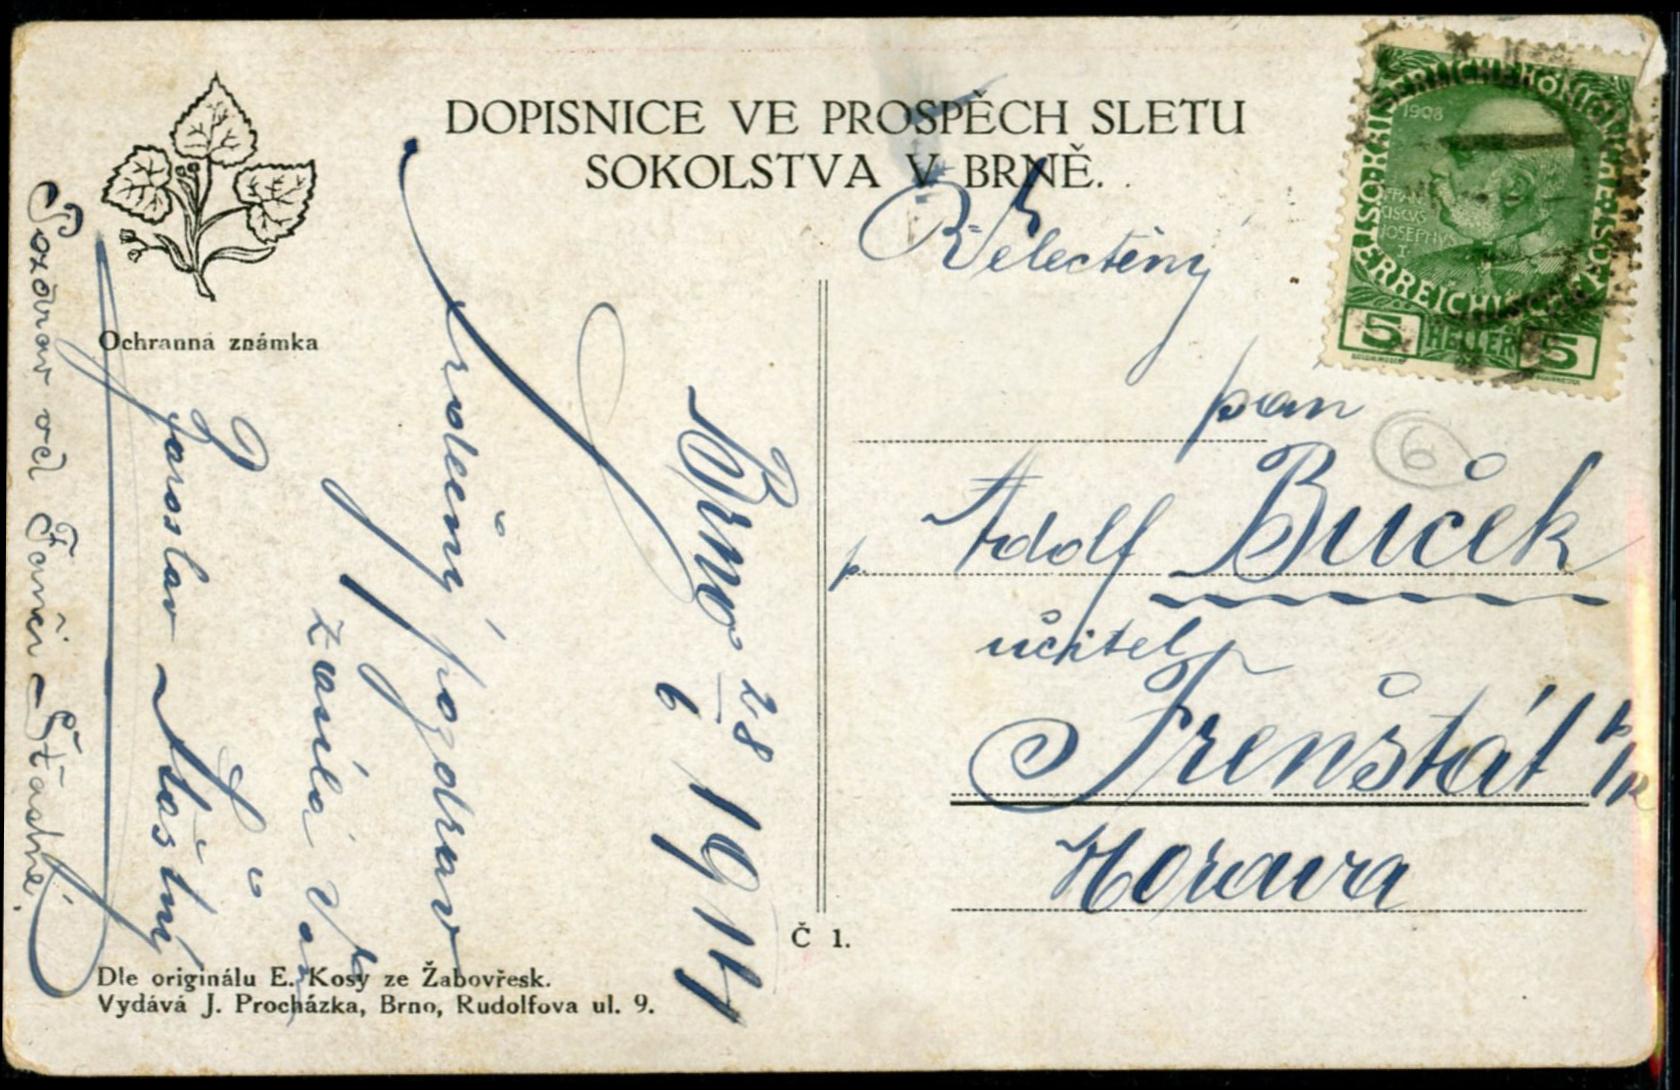 DOPISNICE VE PROSPĚCH SLETU
SOKOLSTVA V BRNĚ.
Ochranná známka
Brno 28/6 1914
Srdečný pozdrav
zasílá Vám
Jaroslav Šťastný
Pozdrav od Fanči Šťastné.
Velectěný
pán
Adolf Buček
učitel
Frenštát p/R
Morava
ÖSTERREICHISCHE
1908
FRAN
CISCVS
IOSEPHVS
I
5 HELLER 5
6
Č 1.
Dle originálu E. Kosy ze Žabovřesk.
Vydává J. Procházka, Brno, Rudolfova ul. 9.